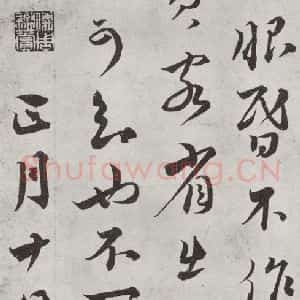 眼昏不作
客省出
可知也不
正月十
Shufawang.CN